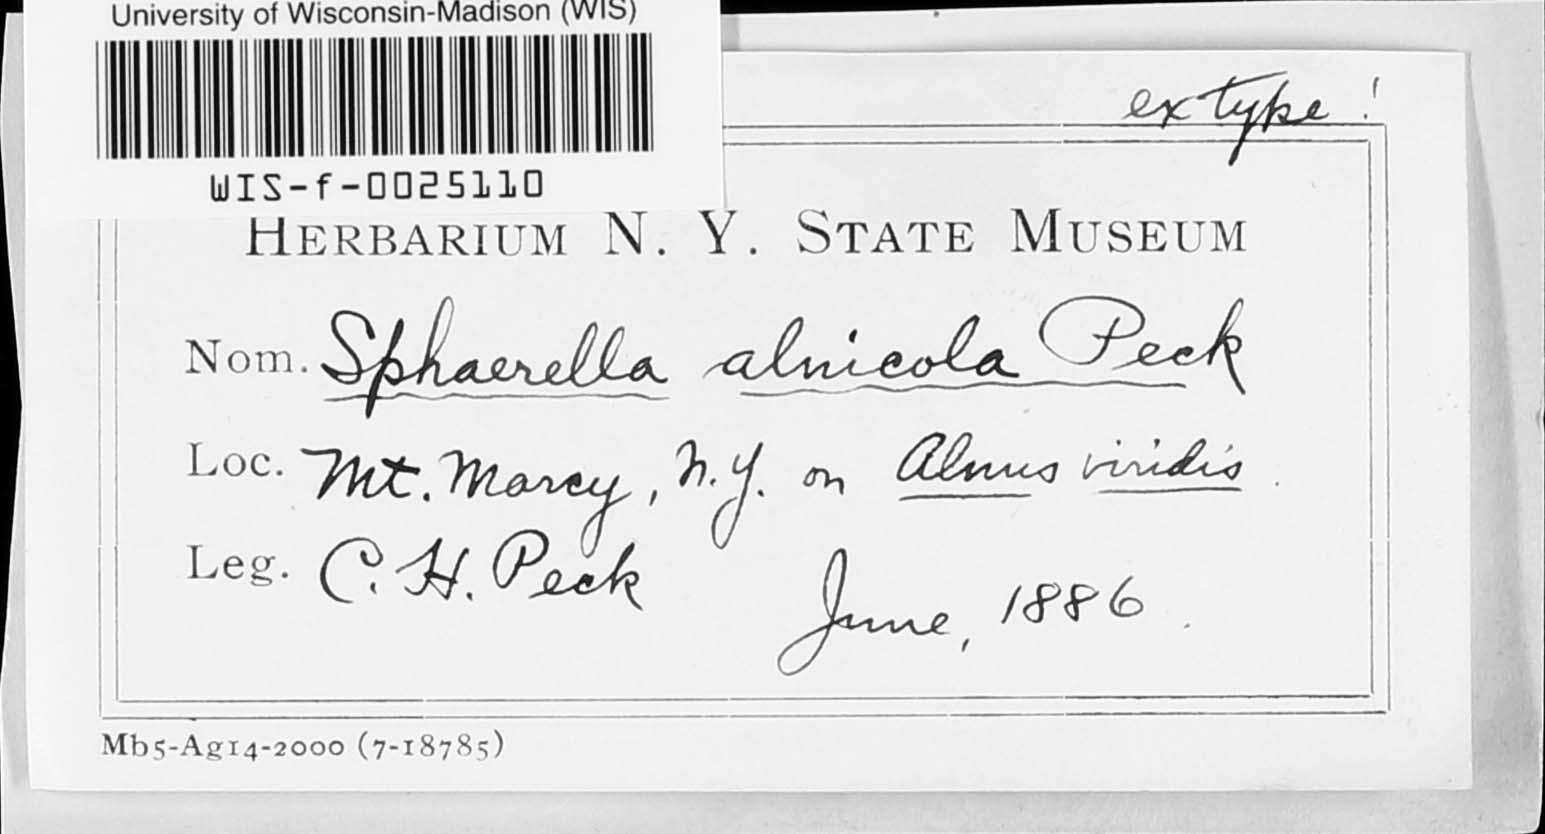 University of Wisconsin-Madison (WIS)
WIS-f-0025110
ex type!
HERBARIUM N. Y. STATE MUSEUM
Nom. Sphaerella alnicola Peck
Loc. Mt. Marcy, N.Y. on Alnus viridis.
Leg. C. H. Peck
June, 1886.
Mb5-Ag14-2000 (7-18785)